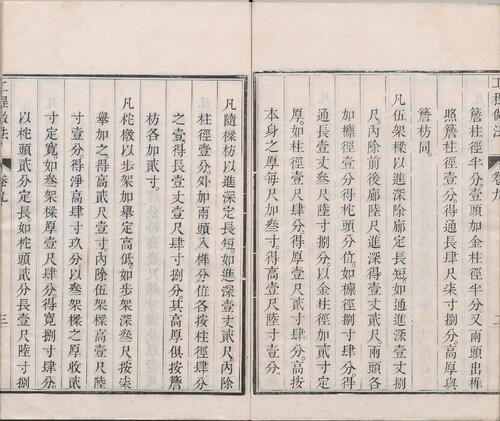 工程做法 卷九 二
簷柱徑半分壹頭加金柱徑半分又兩頭出榫
照簷柱徑壹分得通長肆尺柒寸捌分高厚與
簷枋同
凡伍架樑以進深除廊定長短如通進深壹丈捌
尺內除前後廊陸尺進深得壹丈貳尺兩頭各
加檁徑壹分得柁頭分位如檁徑捌寸肆分得
通長壹丈叄尺陸寸捌分以金柱徑加貳寸定
厚如柱徑壹尺肆分得厚壹尺貳寸肆分高按
本身之厚每尺加叄寸得高壹尺陸寸壹分
凡隨樑枋以進深定長短如進深壹丈貳尺內除
柱徑壹分外加兩頭入榫分位各按柱徑肆分
之壹得長壹丈壹尺肆寸捌分其高厚俱按簷
枋各加貳寸
凡柁橔以步架加舉定高低如步架深叄尺按柒
舉加之得高貳尺壹寸內除伍架樑高壹尺陸
寸壹分得淨高肆寸玖分以叄架樑之厚收貳
寸定寬如叄架樑厚壹尺肆分得寬捌寸肆分
以柁頭貳分定長如柁頭貳分長壹尺陸寸捌
工程做法 卷九 三